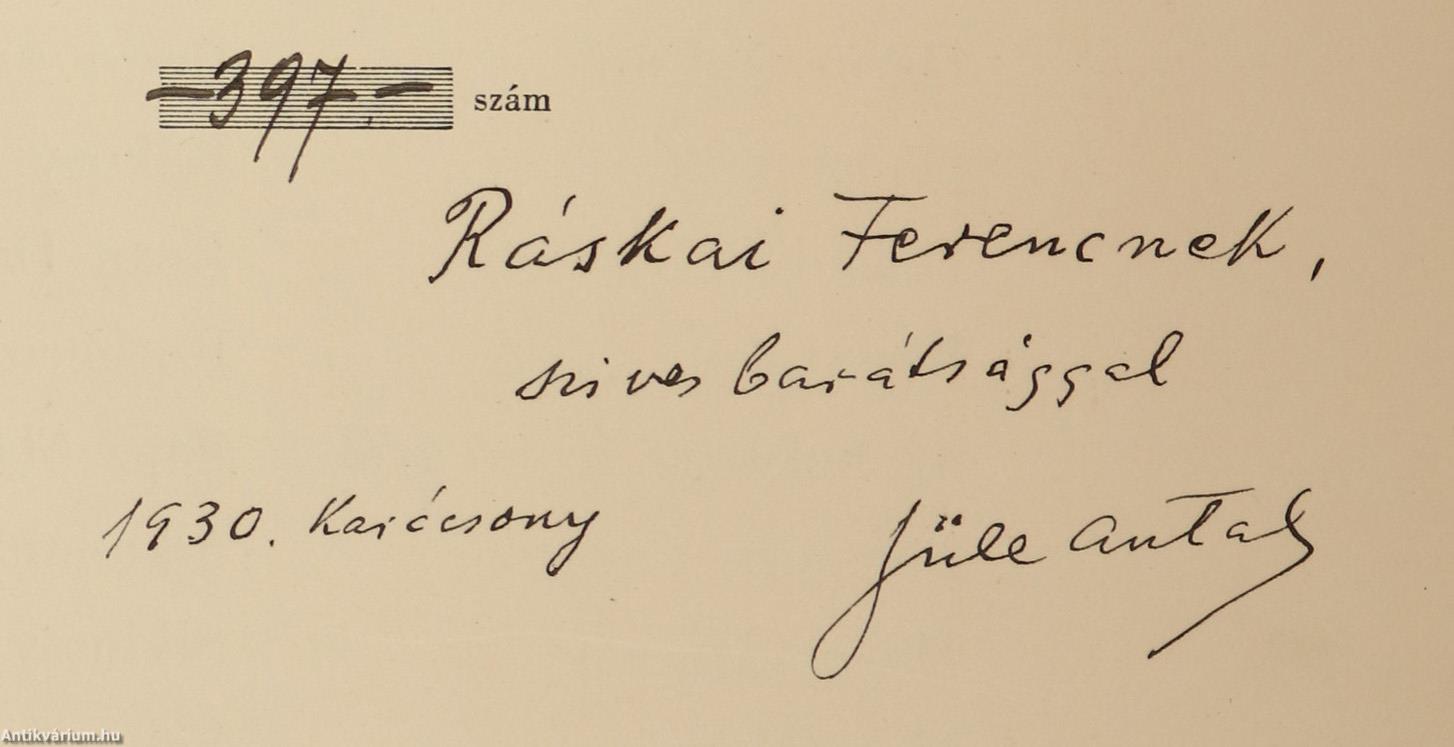 —397.— szám
Ráskai Ferencnek,
szives barátsággal
1930. Karácsony
Jüle Antal
Antikvárium.hu